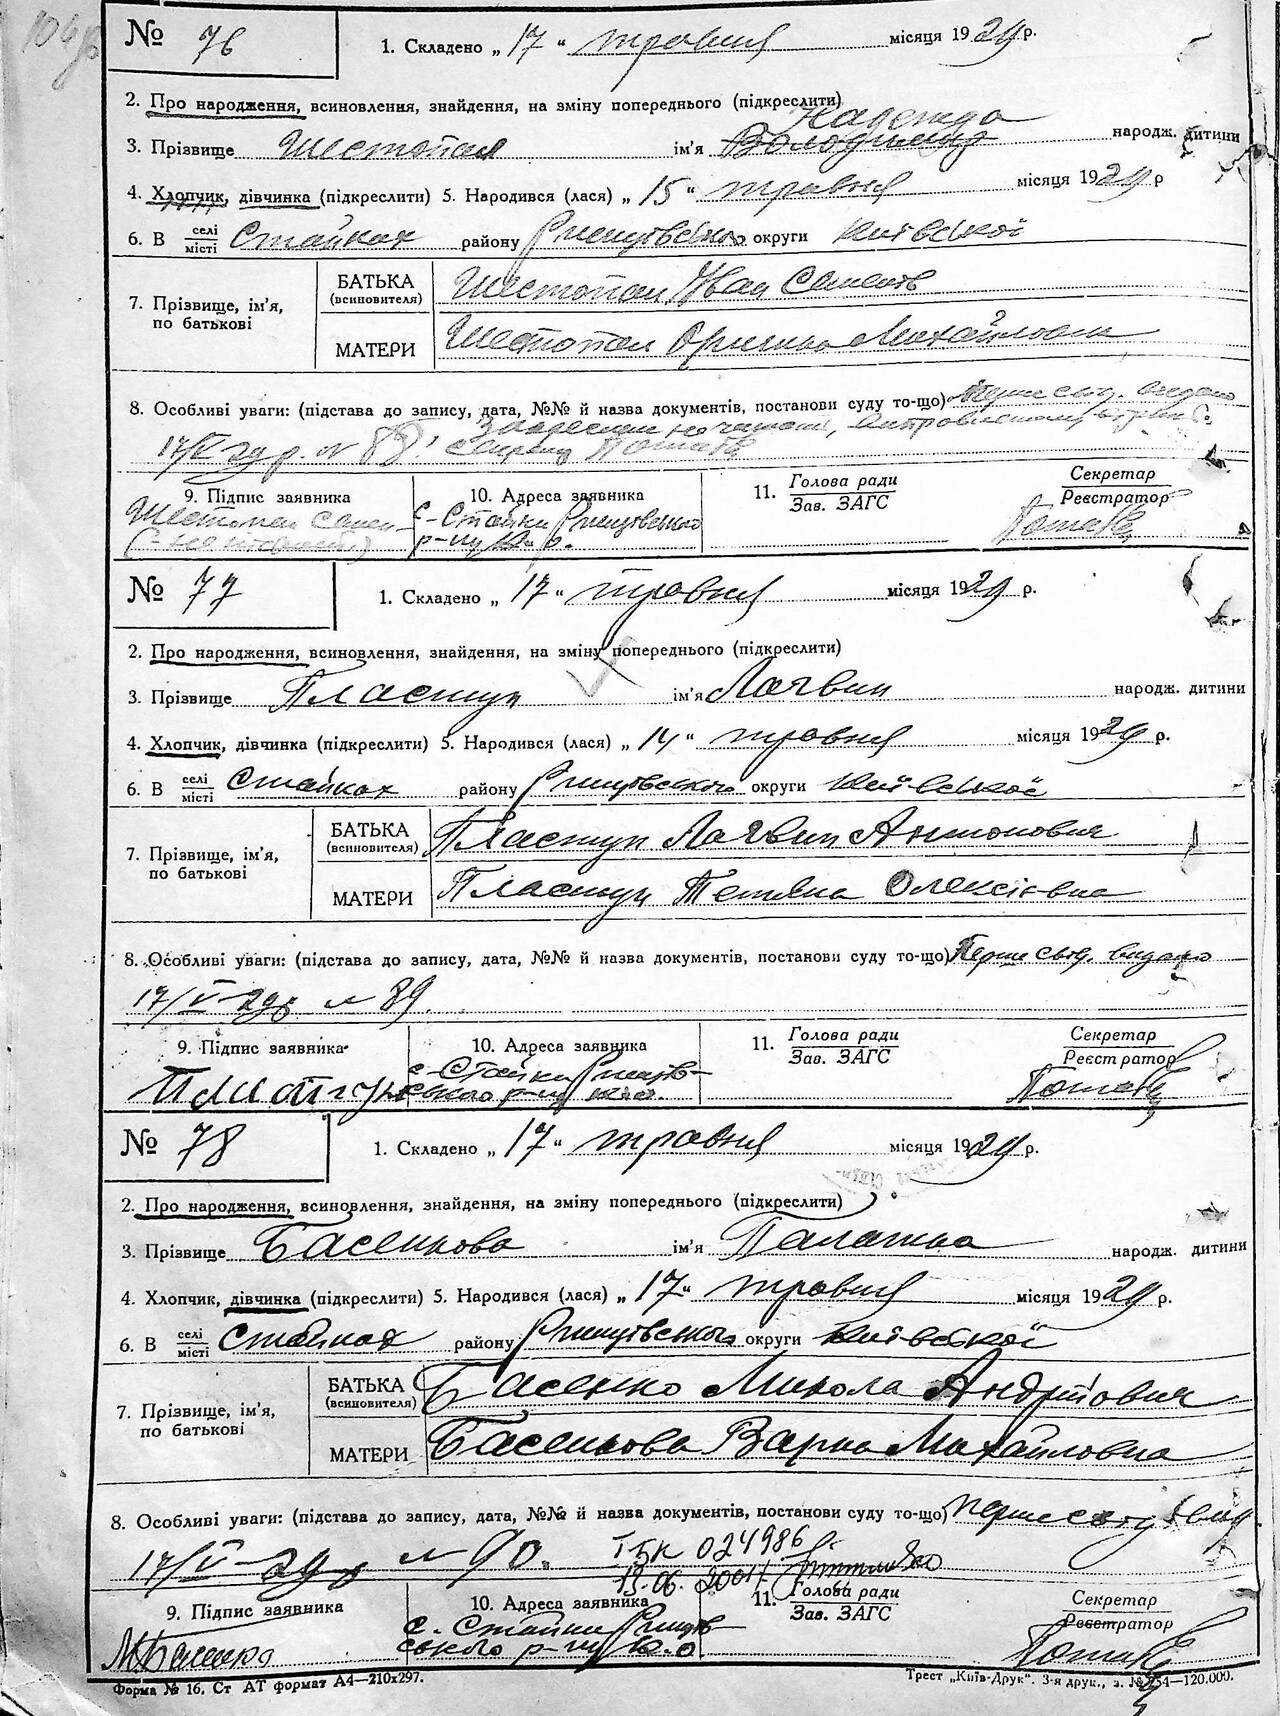 № 76 1. Складено „ 17 “ травня місяця 1929 р.
2. Про народження, всиновлення, знайдення, на зміну попереднього (підкреслити)
Надежда
3. Прізвище Шестопал ім'я Володимир народж. дитини
4. Хлопчик, дівчинка (підкреслити) 5. Народився (лася) „ 15 “ травня місяця 1929 р
6. В селі місті Стайках району Ржищівського округи Київської
7. Прізвище, ім'я, по батькові БАТЬКА (всиновителя) Шестопал Іван
МАТЕРИ Шестопал Орина Михайловна
8. Особливі уваги: (підстава до запису, дата, №№ й назва документів, постанови суду то-що) Перше свід. видано
17/V 29 р. № 88.
9. Підпис заявника 10. Адреса заявника 11. Голова ради Зав. ЗАГС Секретар Реєстратор
Шестопал с-Стайки Ржищівського
р-ну К. о.
№ 77 1. Складено „ 17 “ травня місяця 1929 р.
2. Про народження, всиновлення, знайдення, на зміну попереднього (підкреслити)
3. Прізвище Пластун ім'я Логвин народж. дитини
4. Хлопчик, дівчинка (підкреслити) 5. Народився (лася) „ 14 “ травня місяця 1929 р.
6. В селі місті Стайках району Ржищівського округи Київської
7. Прізвище, ім'я, по батькові БАТЬКА (всиновителя) Пластун Логвин Антонович
МАТЕРИ Пластун Тетяна Олексієвна
8. Особливі уваги: (підстава до запису, дата, №№ й назва документів, постанови суду то-що) Перше свід. видано
17/V-29 р № 89.
9. Підпис заявника 10. Адреса заявника 11. Голова ради Зав. ЗАГС Секретар Реєстратор
с-Стайки Ржищів-
ського р-ну К.о.
№ 78 1. Складено „ 17 “ травня місяця 1929 р.
2. Про народження, всиновлення, знайдення, на зміну попереднього (підкреслити)
3. Прізвище Басенкова ім'я Палажка народж. дитини
4. Хлопчик, дівчинка (підкреслити) 5. Народився (лася) „ 17 “ травня місяця 1929 р.
6. В селі місті Стайках району Ржищівського округи Київської
7. Прізвище, ім'я, по батькові БАТЬКА (всиновителя) Басенко Микола Андрієвич
МАТЕРИ Басенкова Варка Михайловна
8. Особливі уваги: (підстава до запису, дата, №№ й назва документів, постанови суду то-що) перше
17/V-29 р № 90. І БК 024986
13.06.2001
9. Підпис заявника 10. Адреса заявника 11. Голова ради Зав. ЗАГС Секретар Реєстратор
М Басенко с. Стайки Ржищів-
ського р-ну К.о
Форма № 16. Ст АТ формат А4—210х297. Трест „Київ-Друк“. 3-я друк., з. № 754—120.000.